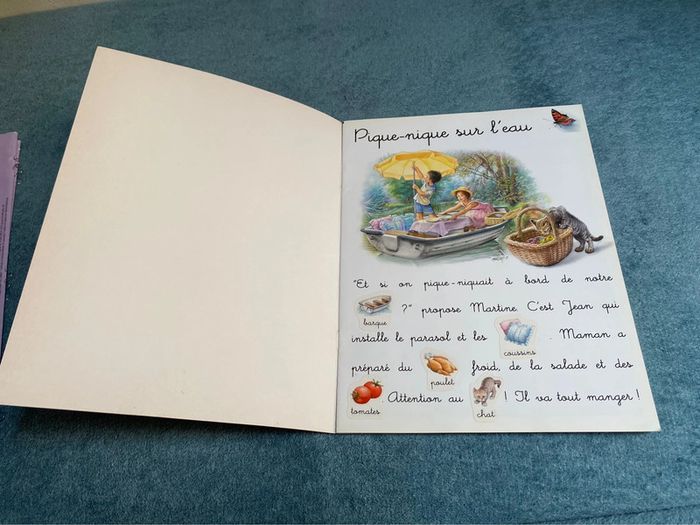 Pique-nique sur l'eau
"Et si on pique-niquait à bord de notre
barque ?" propose Martine. C'est Jean qui
installe le parasol et les coussins . Maman a
préparé du poulet froid, de la salade et des
tomates . Attention au chat ! Il va tout manger !